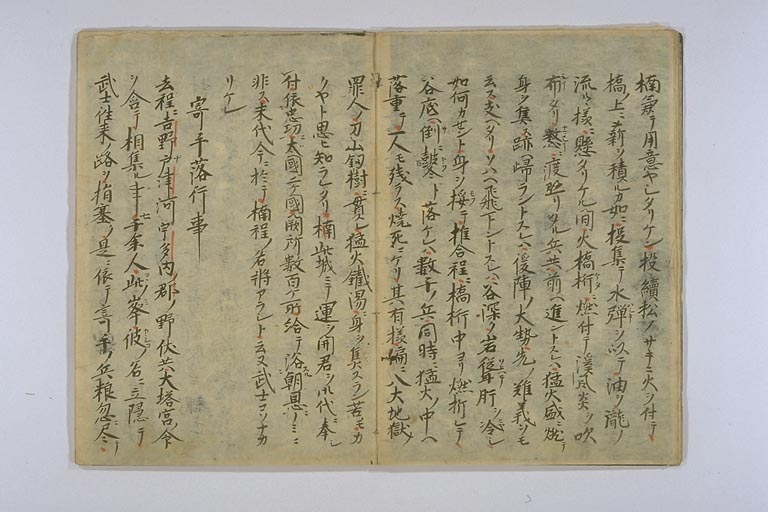 楠兼テ用意ヤシタリケン投續松ノサキニ火ヲ付テ
橋ノ上ニ薪ヲ積ルカ如ニ投集テ水弾ヲ以テ油ヲ瀧ノ
流ルヽ様ニ懸タリケル間火橋桁ニ燃付テ溪風炎ヲ吹
布タリ憖ニ渡懸リタル兵共前ヘ進ントスレハ猛火盛ニ燃テ
身ヲ焦ス跡帰ラントスレハ後陣ノ大勢先ノ難義ヲモ
云ス支ヘタリソハヘ飛下ントスレハ谷深ク岩聳肝ヲ冷シ
如何カセント身ヲ揉テ推合程ニ橋桁中ヨリ燃折レテ
谷底ヘ倒ニ鞺ト落ケレハ數千ノ兵同時ニ猛火ノ中ヘ
落重テ一人モ残ラス焼死ニケリ其有様偏ニ八大地獄
罪人ノ刀山釼樹ニ貫レ猛火鐵湯ニ身ヲ焦スラン苦モカ
クヤト思ヒ知ラレタリ楠此城ニテ運ヲ開君ヲ御代ニ奉
付依忠功大國二ケ國闕所數百ケ所給テ浴朝恩ノミニ
非ス末代今ニ於テ楠程ノ名将アラント云フ武士コソナカ
リケレ
寄手落行事
去程ニ吉野戸津河宇多内郡ノ野伏共大塔宮ノ令
ヲ含テ相集ル事七千余人此ノ峯彼ノ谷ニ立隠テ
武士往来ノ路ヲ指塞ク是ニ依テ寄手ノ兵粮忽ニ尽テ